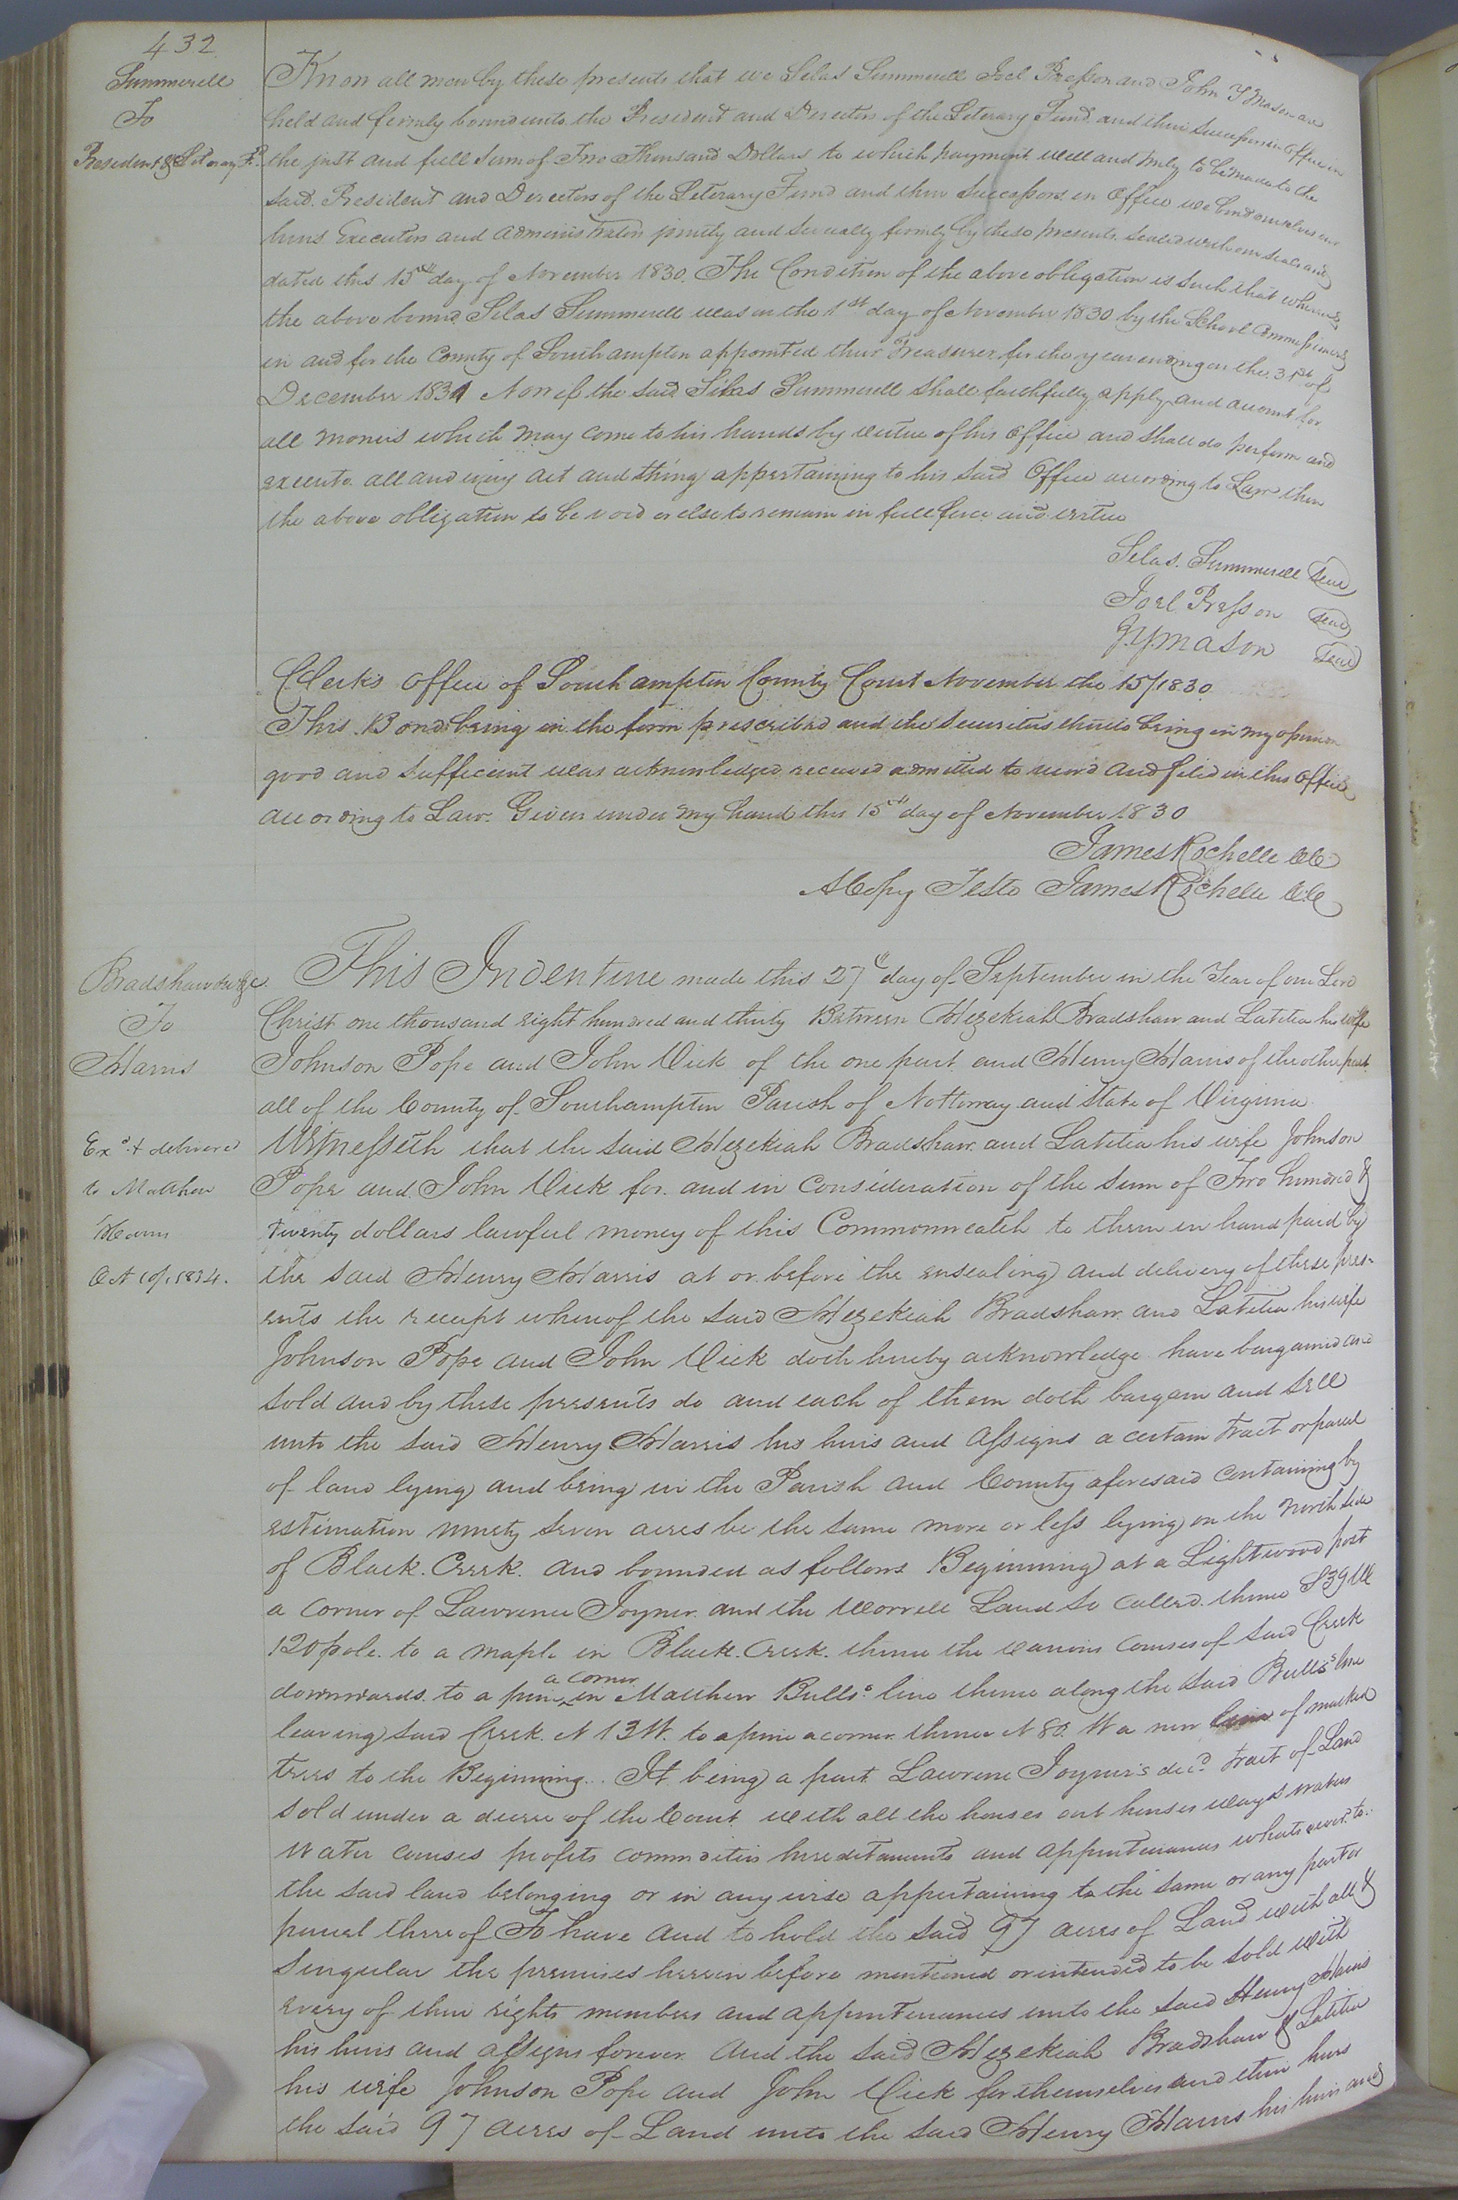 432
Summerell
To
President &c Literary Fd.
Know all men by these presents that we Silas Summerell Joel Presson and John Y Mason are
held and firmly bound unto the President and Directors of the Literary Fund and their Successors in Office in
the just and full Sum of Two Thousand Dollars to which payment well and truly to be made to the
said President and Directors of the Literary Fund and their Successors in Office we bind ourselves our
heirs Executors and administrators jointly and severally firmly by these presents sealed with our seals and
dated this 15th day of November 1830. The Condition of the above obligation is such that whereas
the above bound Silas Summerell was on the 1st day of November 1830 by the School Commissioners
in and for the County of Southampton appointed their Treasurer for the year ending on the 31st of
December 1831 Now if the said Silas Summerell shall faithfully apply and account for
all monies which may come to his hands by virtue of his office and shall do perform and
execute all and every act and thing appertaining to his said Office according to Law then
the above obligation to be void or else to remain in full force and virtue
Silas. Summerell Seal
Joel Presson Seal
J.Y. Mason Seal
Clerks Office of Southampton County Court November the 15/1830
This Bond being in the form prescribed and the Securities thereto being in my opinion
good and sufficient was acknowledged received admitted to record and filed in this office
according to Law. Given under my hand this 15th day of November 1830
James Rochelle CC
A Copy Teste James Rochelle CC
Bradshaw &c
To
Harris
Exd. & delivered
to Matthew
Harris
Oct 10, 1834.
This Indenture made this 27th day of September in the Year of our Lord
Christ one thousand eight hundred and thirty Between Hezekiah Bradshaw and Latitia his wife
Johnson Pope and John Vick of the one part and Henry Harris of the other part
all of the County of Southampton Parish of Nottoway and State of Virginia
Witnesseth that the said Hezekiah Bradshaw and Latitia his wife Johnson
Pope and John Vick for and in consideration of the sum of Two hundred &
twenty dollars lawful money of this Commonwealth to them in hand paid by
the said Henry Harris at or before the ensealing and delivery of these pres-
ents the receipt whereof the said Hezekiah Bradshaw and Latitia his wife
Johnson Pope and John Vick doth hereby acknowledge have bargained and
sold and by these presents do and each of them doth bargain and sell
unto the said Henry Harris his heirs and assigns a certain tract or parcel
of land lying and being in the Parish and County aforesaid containing by
estimation ninety seven acres be the same more or less lying on the north side
of Black. Creek. and bounded as follows Beginning at a Lightwood post
a corner of Lawrence Joyner and the Worrell Land so called. thence S 39 W
120 pole. to a maple in Black. Creek. thence the various courses of said Creek
downwards. to a pine a corner in Matthew Bulls. line thence along the said Bulls's line
leaving said Creek. N 13 W. to a pine a corner. thence N 80. W a new of marked
trees to the Beginning... It being a part Lawrence Joyner's decd. tract of Land
sold under a decree of the Court with all the houses out houses ways waters
water courses profits commodities hereditaments and appurtenances whatsoever to
the said land belonging or in any wise appertaining to the same or any part or
parcel there of To have and to hold the said 97 acres of Land with all &
Singular the premises herein before mentioned or intended to be sold with
every of their rights members and appurtenances unto the said Henry Harris
his heirs and assigns forever. and the said Hezekiah Bradshaw & Latitia
his wife Johnson Pope and John Vick for themselves and their heirs
the said 97 acres of Land unto the said Henry Harris his heirs and